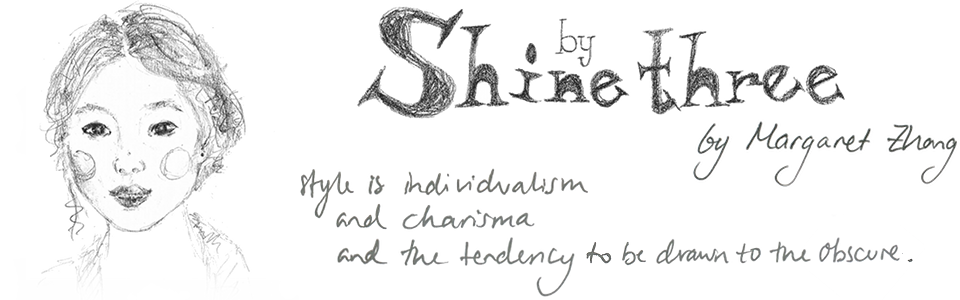 Shine by three
by Margaret Zhang
style is individualism
and charisma
and the tendency to be drawn to the obscure.